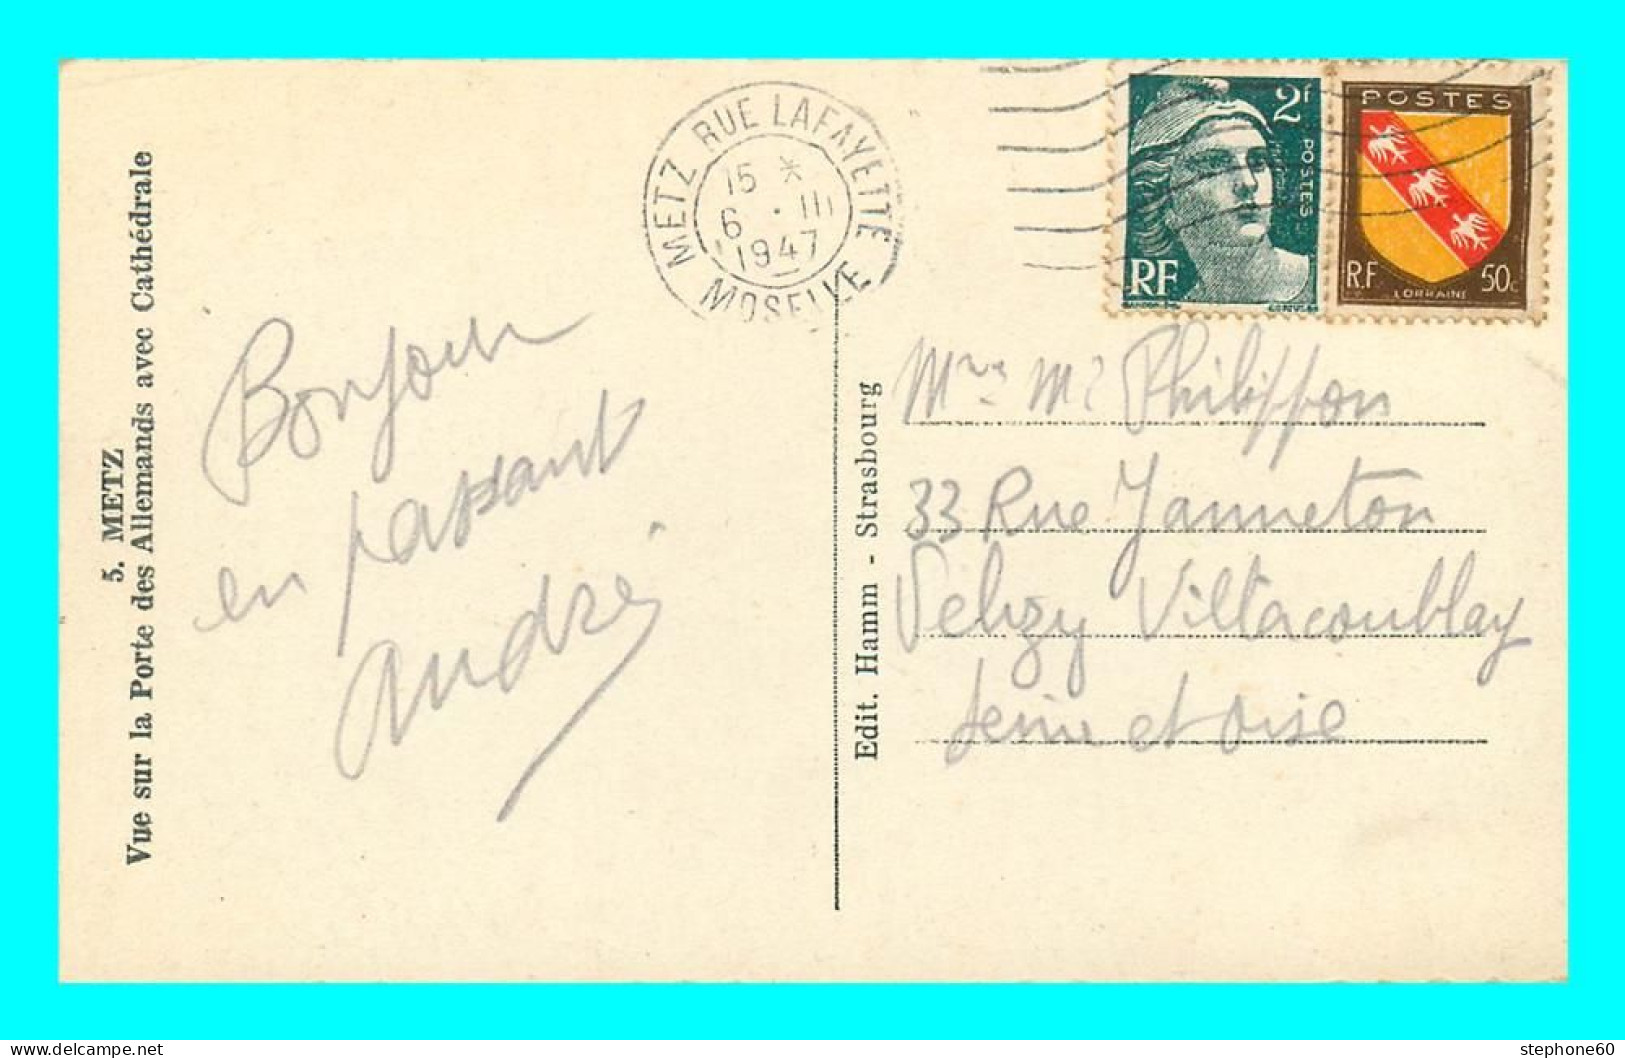 5. METZ
Vue sur la Porte des Allemands avec Cathédrale
Bonjour
en passant
André
METZ RUE LAFAYETTE
15 *
6 · III
1947
MOSELLE
2f
POSTES
RF
POSTES
RF 50c
LORRAINE
Edit. Hamm - Strasbourg
Philippon
33 Rue Janneton
Velizy Villacoublay
Seine et Oise
stephone60